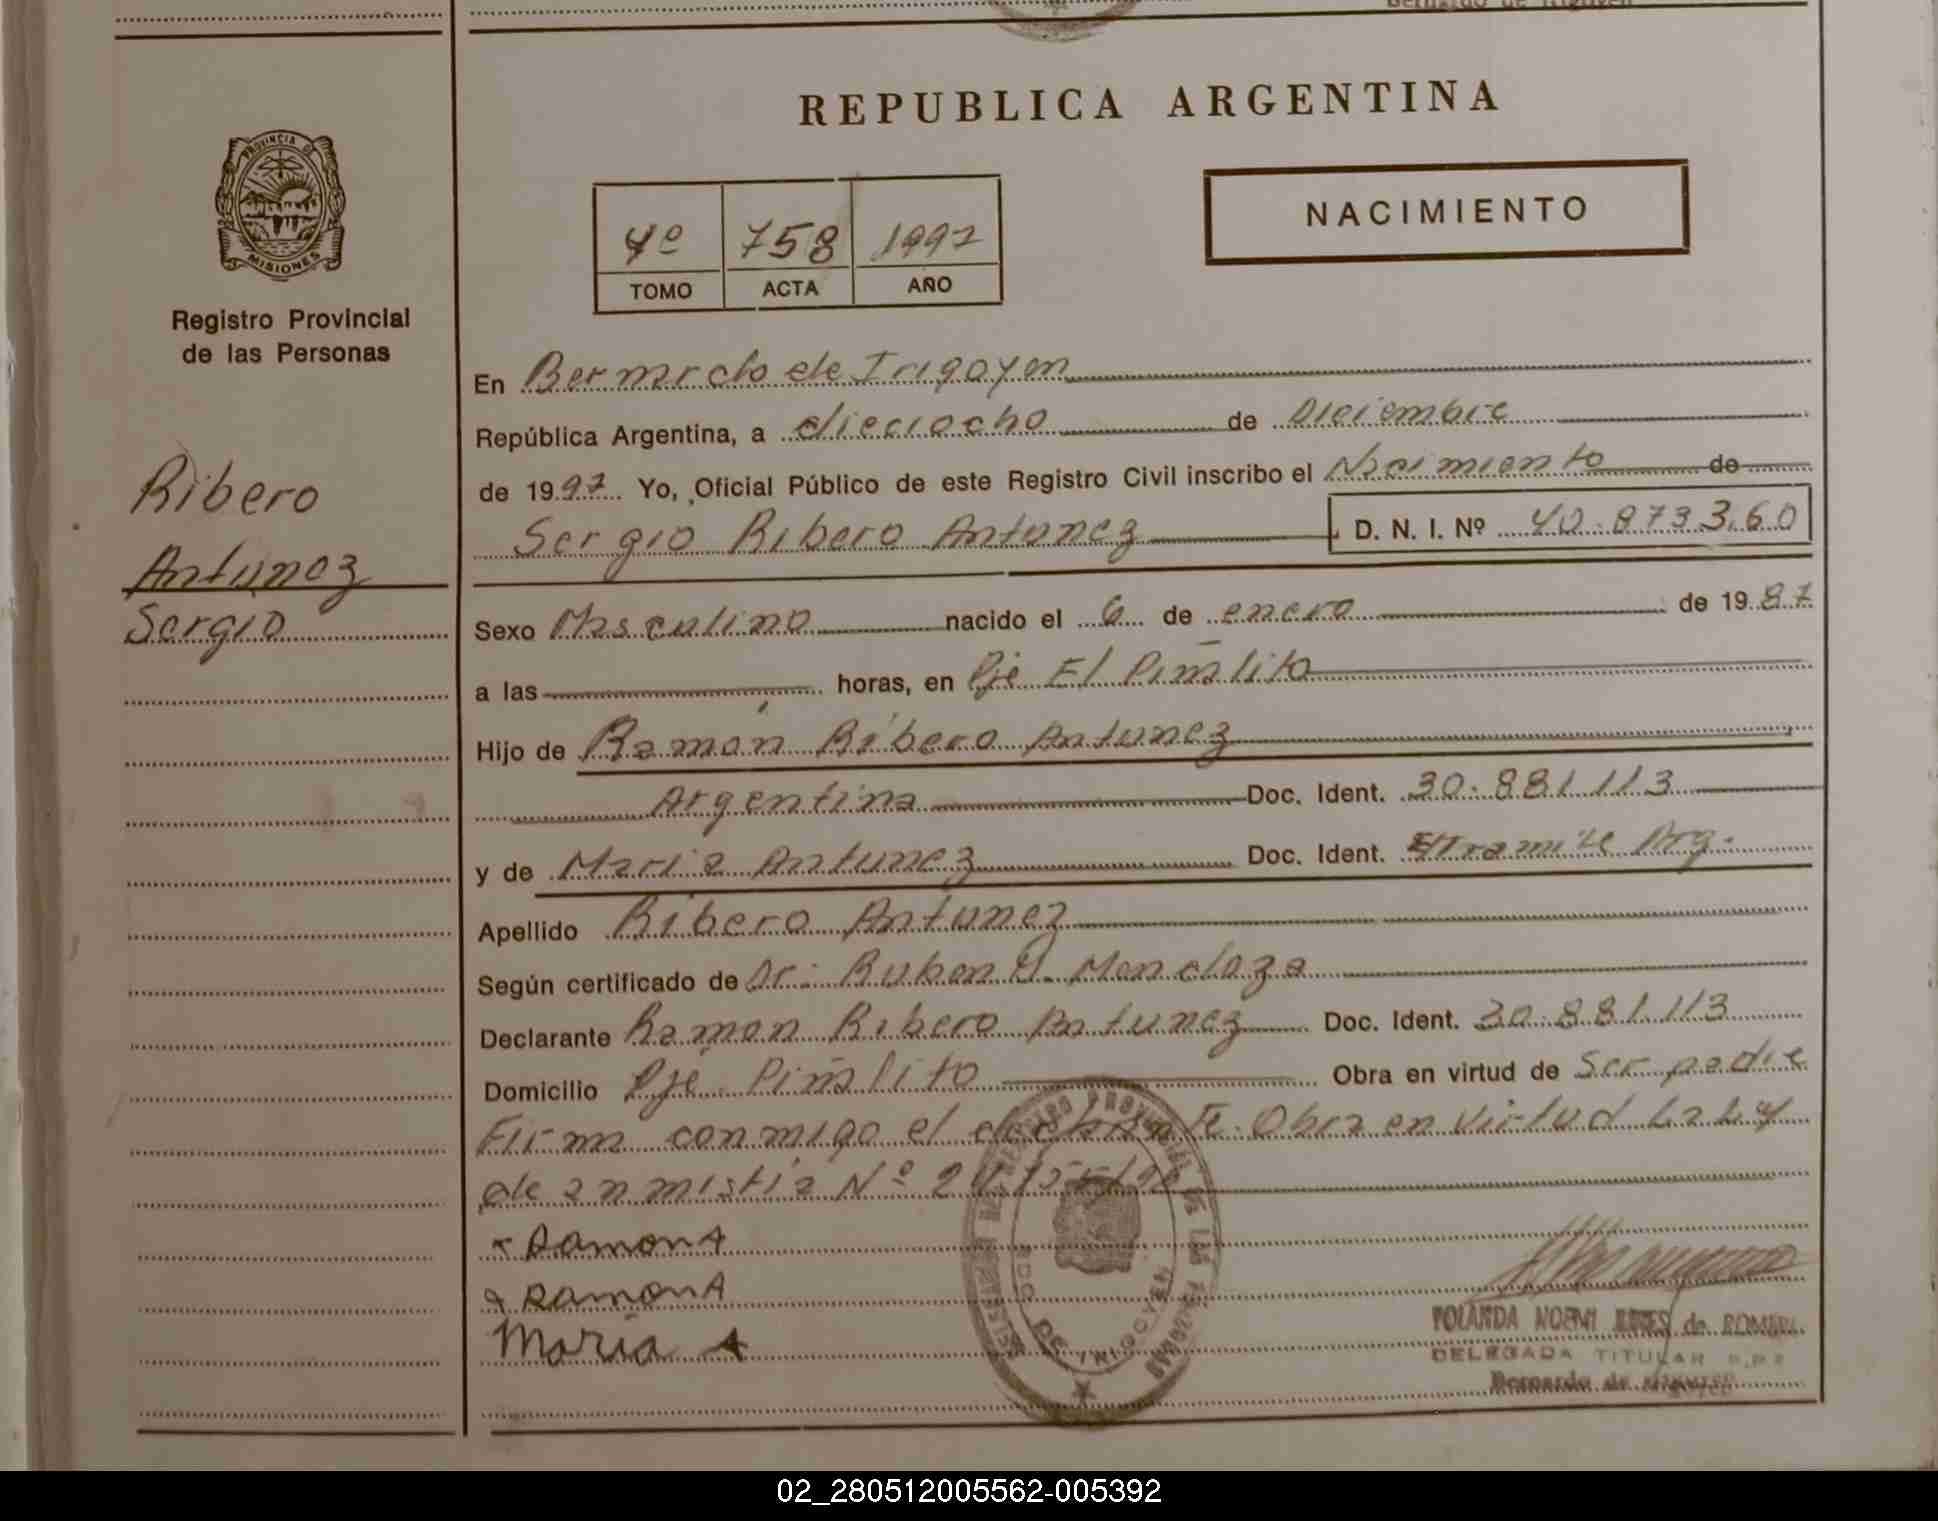 REPUBLICA ARGENTINA
PROVINCIA DE
MISIONES
Registro Provincial
de las Personas
4º 758 1997
TOMO ACTA AÑO
NACIMIENTO
Ribero
Antunez
Sergio
En Bernardo de Irigoyen
República Argentina, a dieciocho de Diciembre
de 1997 Yo, Oficial Público de este Registro Civil inscribo el Nacimiento de
Sergio Ribero Antunez D. N. I. Nº 40.873.360
Sexo Masculino nacido el 6 de enero de 1987
a las horas, en Pje El Piñalito
Hijo de Ramón Ribero Antunez
Argentina Doc. Ident. 30.881.113
y de Maria Antunez Doc. Ident. Arg.
Apellido Ribero Antunez
Según certificado de Dr. Ruben Mendoza
Declarante Ramon Ribero Antunez Doc. Ident. 30.881.113
Domicilio Pje Piñalito Obra en virtud de Ser padre
Firma conmigo el declarante. Obra en Virtud La Ley
de anmistia Nº
RamonA
RamonA
Maria A
YOLANDA NOEMI de
DELEGADA TITULAR R.P.P.
Bernardo de Irigoyen
02_280512005562-005392